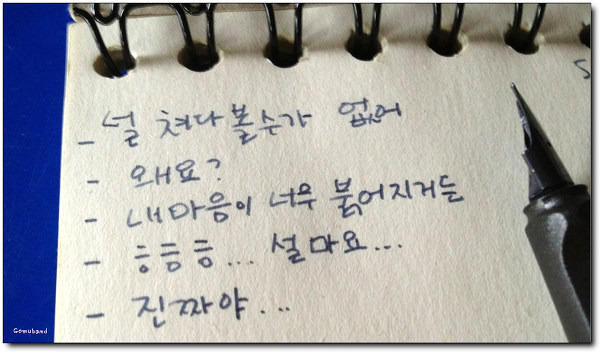 - 널 쳐다볼수가 없어
- 왜요?
- 내마음이 너무 붉어지거든
- 흥흥흥... 설마요...
- 진짜야...
Gomuband